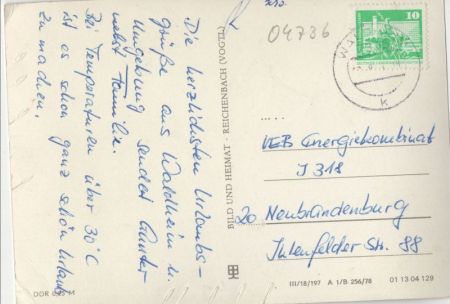 Die herzlichsten Urlaubs-
grüße aus Waldheim u.
Umgebung sendet Günter
nebst Familie.
Bei Temperaturen über 30°C
ist es schon ganz schön Urlaub
zu machen.
BILD UND HEIMAT - REICHENBACH (VOGTL)
04736
10
K
VEB Energiekombinat
J 318
20 Neubrandenburg
Ihlenfelder Str. 88
III/18/197 A 1/B 256/78
01 13 04 129